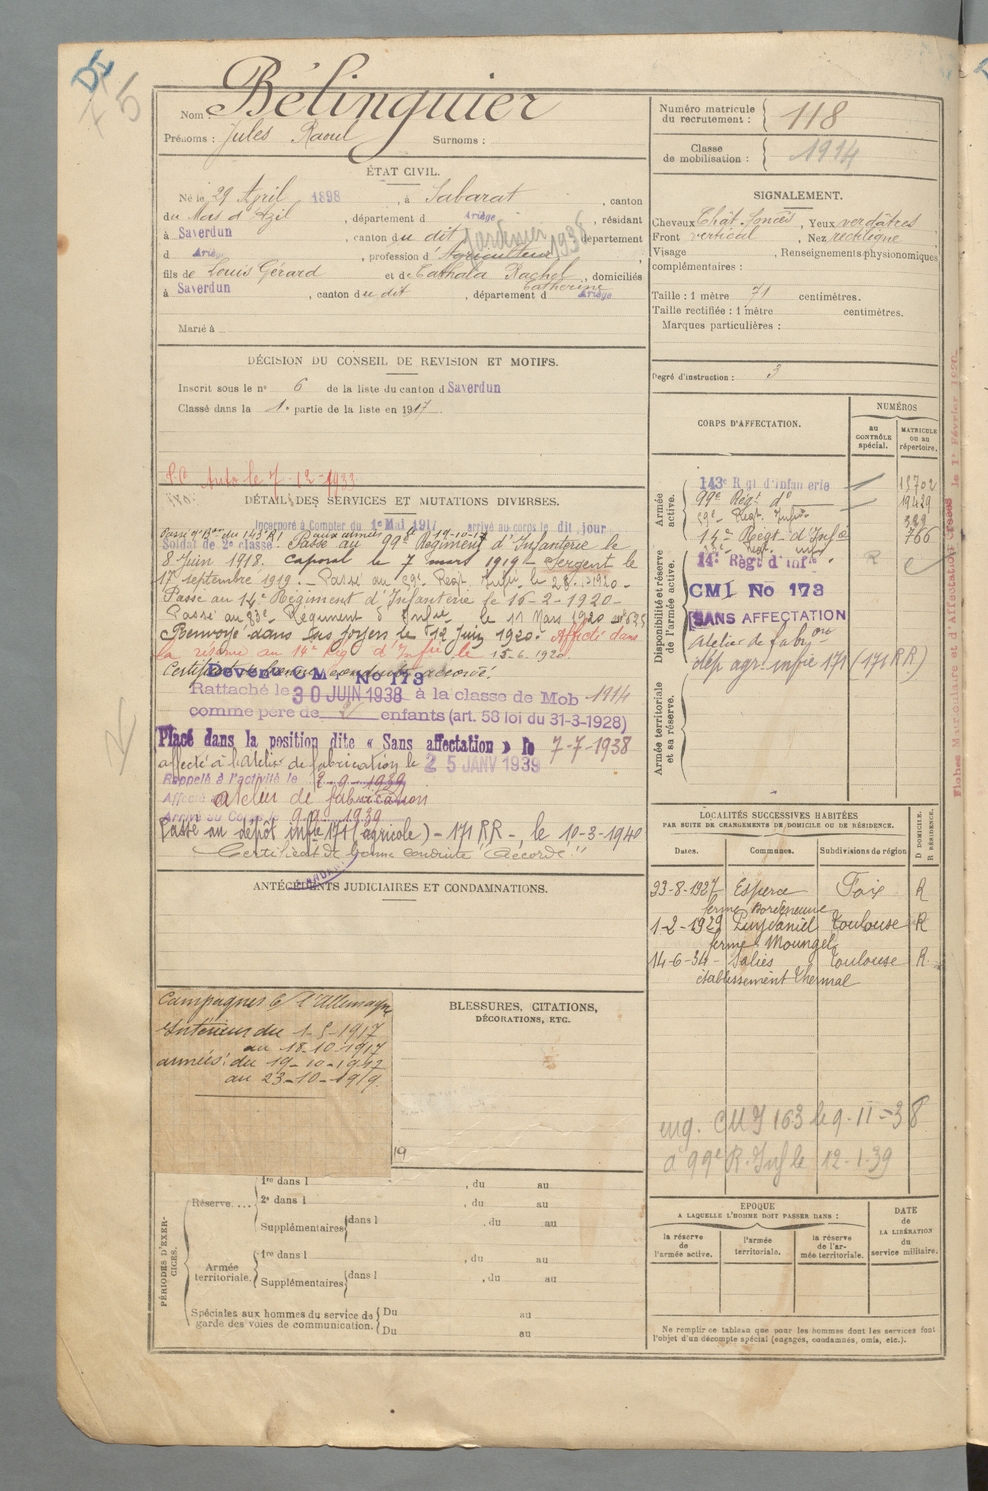 Nom : Bélinguier
Prénoms : Jules Raoul Surnoms :
Numéro matricule du recrutement : 118
Classe de mobilisation : 1914
ÉTAT CIVIL.
Né le 29 Avril 1898, à Sabarat, canton
du Mas d'Azil, département d Ariège, résidant
à Saverdun, canton du dit, département
d Ariège, profession d'Agriculteur
Jardinier 1938
fils de Louis Gérard et de Cathala Rachel Catherine, domiciliés
à Saverdun, canton du dit, département d Ariège
Marié à
DÉCISION DU CONSEIL DE REVISION ET MOTIFS.
Inscrit sous le n° 6 de la liste du canton d Saverdun
Classé dans la 1e partie de la liste en 1917
DÉTAIL DES SERVICES ET MUTATIONS DIVERSES.
Incorporé à Compter du 1e Mai 1917 arrivé au corps le dit jour
Soldat de 2e classe. Passé au 99e Régiment d'Infanterie le
8 Juin 1918. Caporal le 7 mars 1919. Sergent le
17 septembre 1919. Passé au 59e Regt Infie le
Passé au 14e Régiment d'Infanterie le 16-2-1920
Passé au 83e Régiment d'Infie le 11 Mars 1920
Renvoyé dans ses foyers le 12 Juin 1920. Affecté dans
la réserve au 14e Reg d'Infie le 15-6-1920.
Certificat de bonne conduite accordé.
Devenu C M I No 173
Rattaché le 30 JUIN 1938 à la classe de Mob 1914
comme père de 2 enfants (art. 58 loi du 31-3-1928)
Placé dans la position dite « Sans affectation » le 7-7-1938
affecté à l'atelier de fabrication le 25 JANV 1939
Rappelé à l'activité le 2-9-1939
Affecté atelier de fabrication
Arrivé au Corps le 9-9-1939
Passé au dépôt infie 171 (agricole) - 171 RR -, le 10-3-1940
Certificat de bonne conduite "Accordé"
ANTÉCÉDENTS JUDICIAIRES ET CONDAMNATIONS.
Campagnes c/ l'Allemagne
Intérieur du 1-5-1917
au 18-10-1917
armées: du 19-10-1917
au 23-10-1919.
BLESSURES, CITATIONS,
DÉCORATIONS, ETC.
PÉRIODES D'EXERCICES.
Réserve....
1re dans l , du au
2e dans l , du au
Supplémentaires dans l , du au
Armée territoriale.
1re dans l , du au
Supplémentaires dans l , du au
Spéciales aux hommes du service de garde des voies de communication.
Du au
Du au
SIGNALEMENT.
Cheveux Chât. foncés, Yeux verdâtres
Front vertical, Nez rectiligne
Visage , Renseignements physionomiques
complémentaires :
Taille : 1 mètre 71 centimètres.
Taille rectifiée : 1 mètre centimètres.
Marques particulières :
Degré d'instruction : 3
CORPS D'AFFECTATION.
NUMÉROS
au CONTRÔLE spécial.
MATRICULE ou au répertoire.
Armée active.
143e Rgt d'Infanterie
99e Régt do
59e Regt Infie
14e Régt d'Infie 766
Disponibilité et réserve de l'armée active.
14e Régt d'Infie R
CMI No 173
SANS AFFECTATION
Atelier de fabron
dép agr. infie 171 (171 RR)
Armée territoriale et sa réserve.
LOCALITÉS SUCCESSIVES HABITÉES
PAR SUITE DE CHANGEMENTS DE DOMICILE OU DE RÉSIDENCE.
Dates. Communes. Subdivisions de région D DOMICILE. R RÉSIDENCE.
23-8-1927 Esperce Foix R
ferme Bordeneuve
1-2-1929 Puydaniel Toulouse R
ferme Moungel
14-6-34 Salies Toulouse R.
établissement thermal
CMI 163 le 9-11-38
a 99e R. Inf le 12-1-39
EPOQUE
A LAQUELLE L'HOMME DOIT PASSER DANS :
la réserve de l'armée active.
l'armée territoriale.
la réserve de l'armée territoriale.
DATE de LA LIBÉRATION du service militaire.
Ne remplir ce tableau que pour les hommes dont les services font
l'objet d'un décompte spécial (engagés, condamnés, omis, etc.).